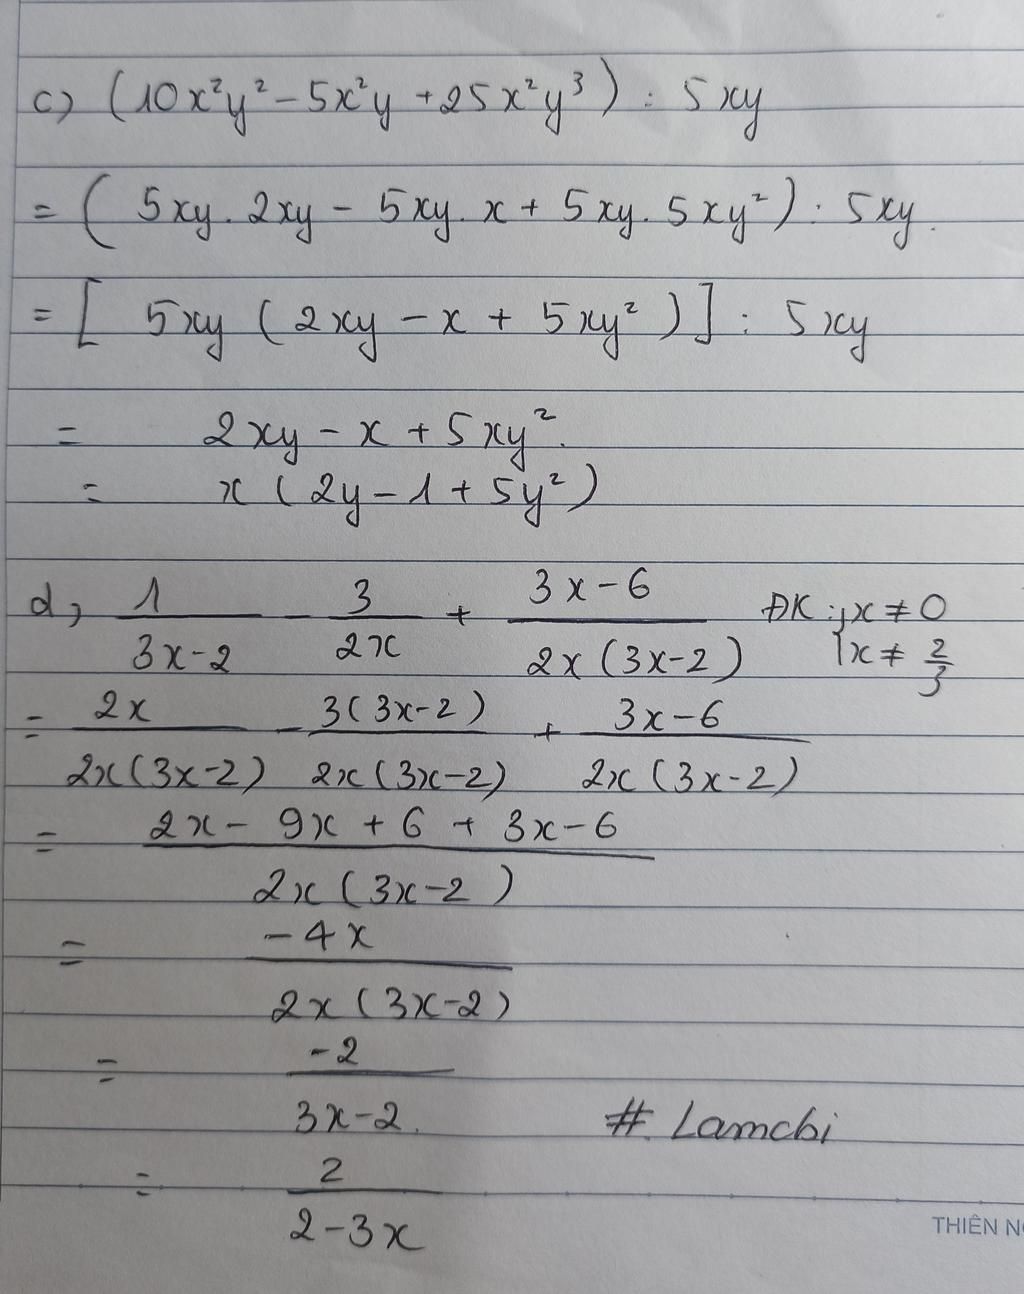 c) (10x²y² - 5x²y + 25x²y³) : 5xy
= ( 5xy. 2xy - 5xy. x + 5xy. 5xy² ) : 5xy.
= [ 5xy ( 2xy - x + 5xy² ) ] : 5xy
= 2xy - x + 5xy².
= x ( 2y - 1 + 5y² )
d, 1/(3x-2) - 3/(2x) + (3x-6)/(2x(3x-2)) ĐK: { x ≠ 0
x ≠ 2/3
= 2x/(2x(3x-2)) - 3(3x-2)/(2x(3x-2)) + (3x-6)/(2x(3x-2))
= (2x - 9x + 6 + 3x - 6)/(2x(3x-2))
= -4x/(2x(3x-2))
= -2/(3x-2).
# Lamchi
= 2/(2-3x)
THIÊN